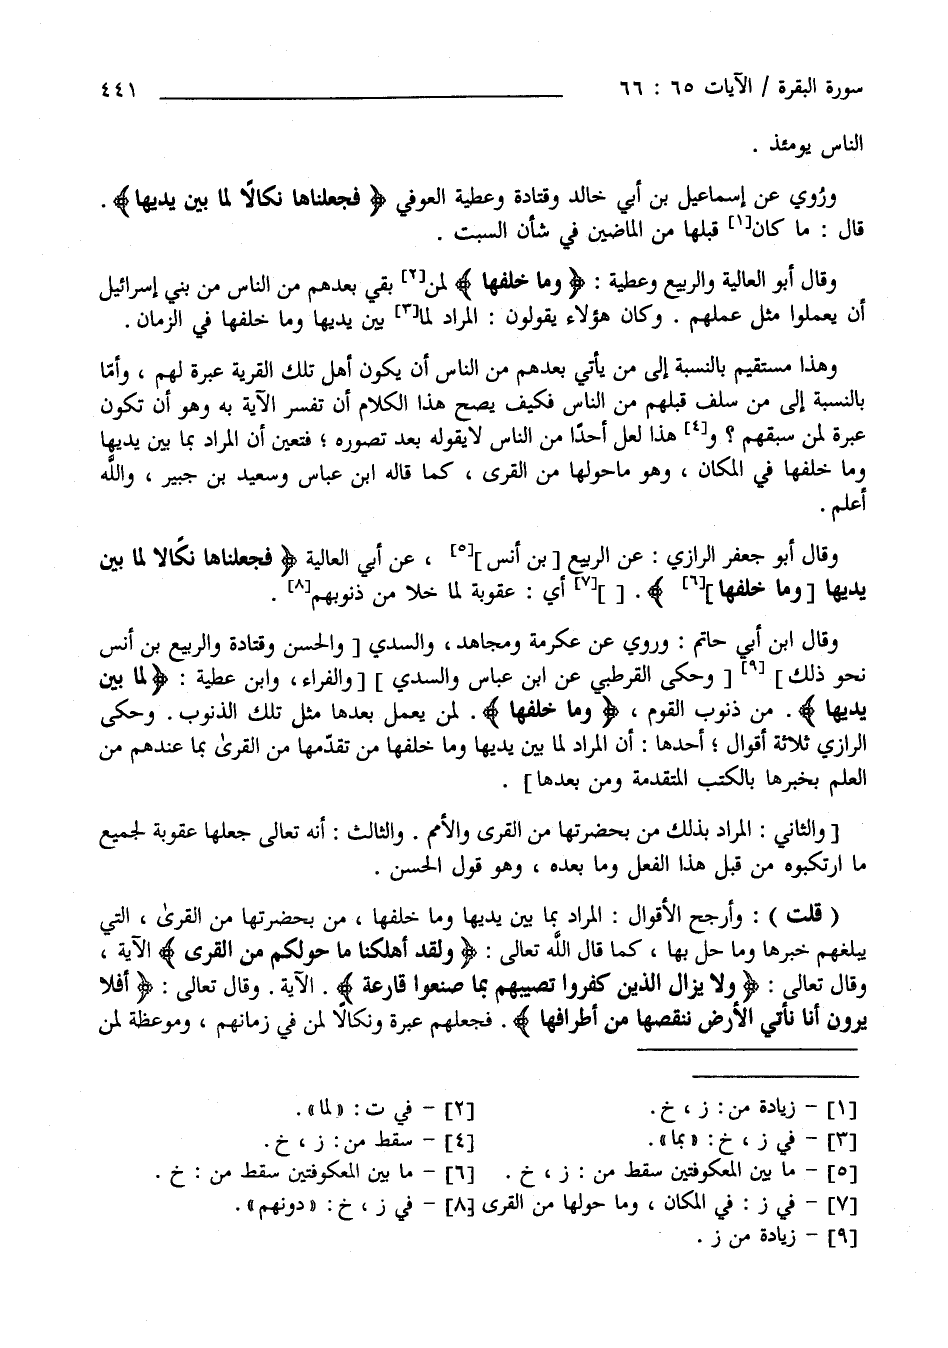 سورة البقرة / الآيات ٦٥ : ٦٦ ٤٤١
الناس يومئذ .
ورُوي عن إسماعيل بن أبي خالد وقتادة وعطية العوفي ﴿ فجعلناها نكالًا لما بين يديها ﴾ .
قال : ما كان[١] قبلها من الماضين في شأن السبت .
وقال أبو العالية والربيع وعطية : ﴿ وما خلفها ﴾ لمن[٢] بقي بعدهم من الناس من بني إسرائيل
أن يعملوا مثل عملهم . وكان هؤلاء يقولون : المراد لما[٣] بين يديها وما خلفها في الزمان .
وهذا مستقيم بالنسبة إلى من يأتي بعدهم من الناس أن يكون أهل تلك القرية عبرة لهم ، وأمّا
بالنسبة إلى من سلف قبلهم من الناس فكيف يصح هذا الكلام أن تفسر الآية به وهو أن تكون
عبرة لمن سبقهم ؟ و[٤] هذا لعل أحدًا من الناس لايقوله بعد تصوره ؛ فتعين أن المراد بما بين يديها
وما خلفها في المكان ، وهو ماحولها من القرى ، كما قاله ابن عباس وسعيد بن جبير ، واللَّه
أعلم .
وقال أبو جعفر الرازي : عن الربيع [ بن أنس ][٥] ، عن أبي العالية ﴿ فجعلناها نكًالا لما بين
يديها [ وما خلفها ][٦] ﴾ . [ ][٧] أي : عقوبة لما خلا من ذنوبهم[٨] .
وقال ابن أبي حاتم : وروي عن عكرمة ومجاهد ، والسدي [ والحسن وقتادة والربيع بن أنس
نحو ذلك ] [٩] [ وحكى القرطبي عن ابن عباس والسدي ] [ والفراء ، وابن عطية : ﴿ لما بين
يديها ﴾ . من ذنوب القوم ، ﴿ وما خلفها ﴾ . لمن يعمل بعدها مثل تلك الذنوب . وحكى
الرازي ثلاثة أقوال ؛ أحدها : أن المراد لما بين يديها وما خلفها من تقدّمها من القرىٰ بما عندهم من
العلم بخبرها بالكتب المتقدمة ومن بعدها ] .
[ والثاني : المراد بذلك من بحضرتها من القرى والأمم . والثالث : أنه تعالى جعلها عقوبة لجميع
ما ارتكبوه من قبل هذا الفعل وما بعده ، وهو قول الحسن .
( قلت ) : وأرجح الأقوال : المراد بما بين يديها وما خلفها ، من بحضرتها من القرىٰ ، التي
يبلغهم خبرها وما حل بها ، كما قال اللَّه تعالى : ﴿ ولقد أهلكنا ما حولكم من القرى ﴾ الآية ،
وقال تعالى : ﴿ ولا يزال الذين كفروا تصيبهم بما صنعوا قارعة ﴾ . الآية . وقال تعالى : ﴿ أفلا
يرون أنا نأتي الأرض ننقصها من أطرافها ﴾ . فجعلهم عبرة ونكالًا لمن في زمانهم ، وموعظة لمن
[١] – زيادة من : ز ، خ . [٢] – في ت : «لما» .
[٣] – في ز ، خ : «بما» . [٤] – سقط من : ز ، خ .
[٥] – ما بين المعكوفتين سقط من : ز ، خ . [٦] – ما بين المعكوفتين سقط من : خ .
[٧] – في ز : في المكان ، وما حولها من القرى [٨] – في ز ، خ : «دونهم» .
[٩] – زيادة من ز .